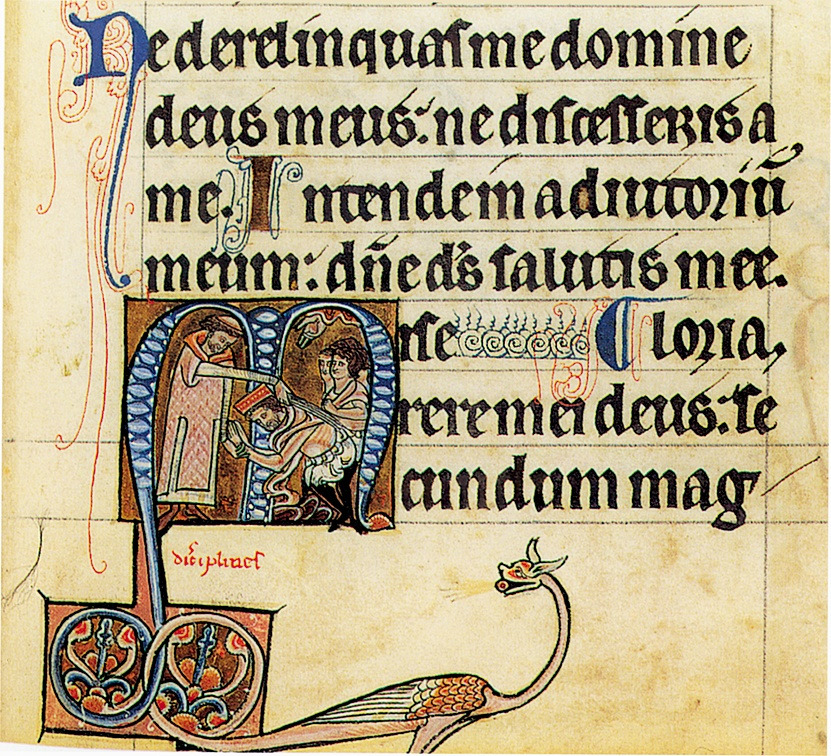 Ne derelinquaſ me domine
deus meus: ne diſceſſeris a
me. Intende in adiutoriū
meum: dn̄e ds̄ ſalutis mee.
Miſe Gloria.
rere mei deus: ſe
cundum mag